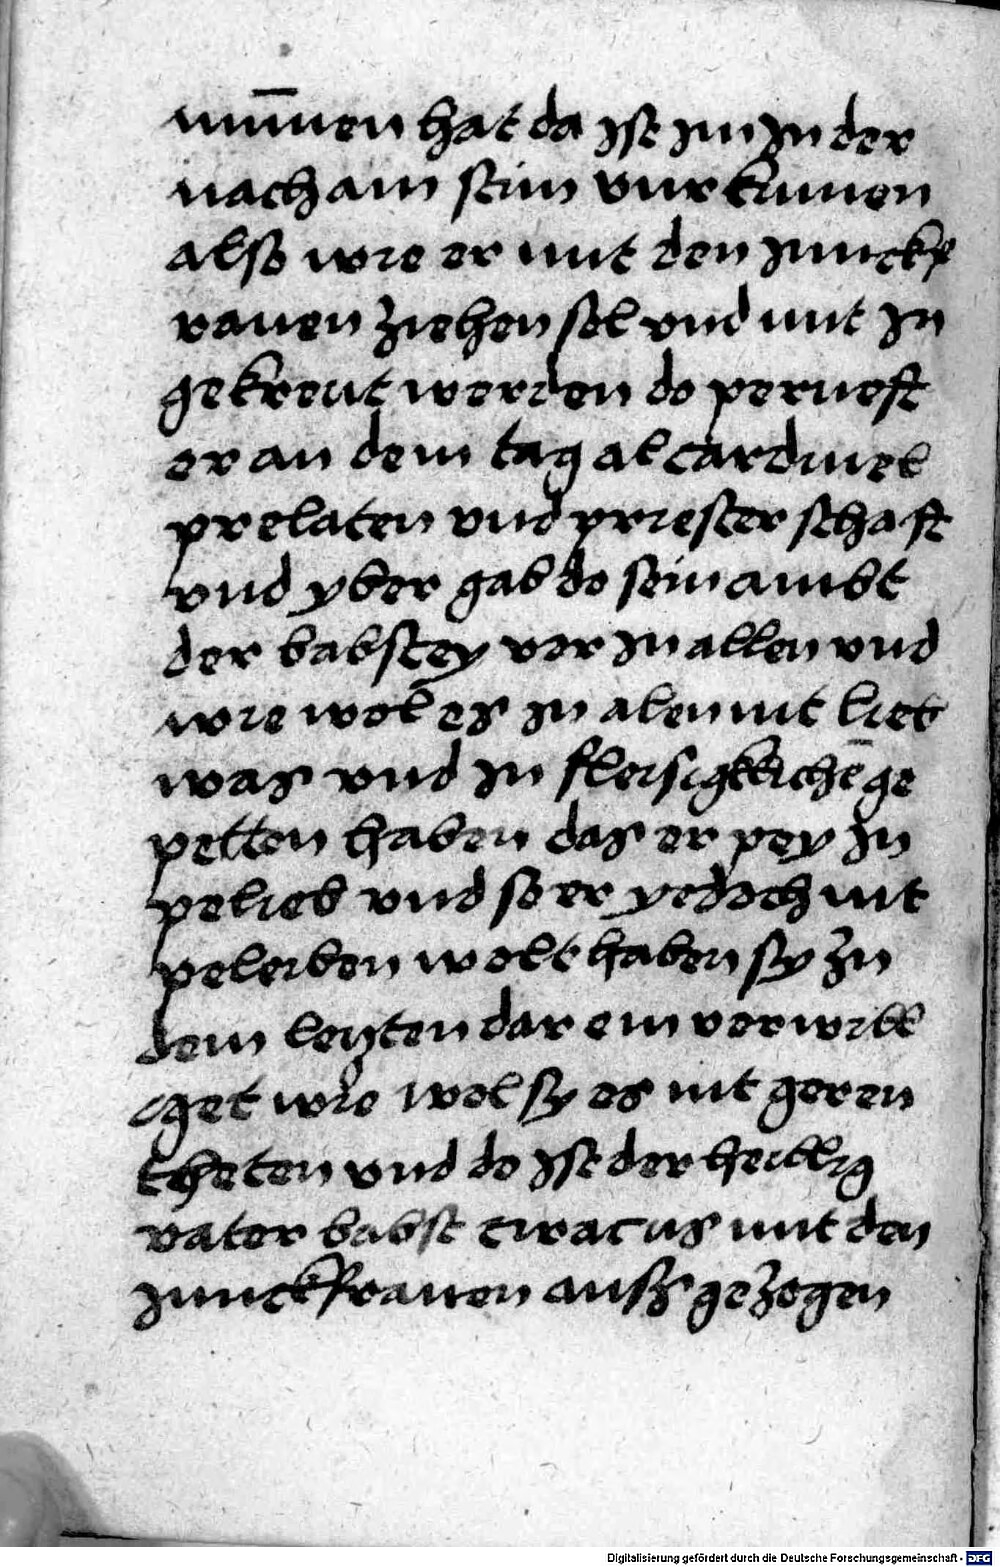 num̄en hat da ist im in der
nach ain stim vur kumen
also wie er mit den junckf
rauen ziehen sol vnd mit in
gekreut werden do peruest
er an dem tag al cardinel
prelaten vnd priester schaft
vnd yber gab do sein ambt
der babstey vor in allen vnd
wie wol es in alen nit lieb
was vnd in fleisigklichē ge
petten haben das er pey in
pelieb vnd so er yedoch nit
peleiben wolt haben sy zu
dem leczten dar ein verwill
get wie wol sy es nit geren
theten vnd do ist der heillig
vater babst ciriacus mit den
junckfrauen ausz gezogen
Digitalisierung gefördert durch die Deutsche Forschungsgemeinschaft - DFG